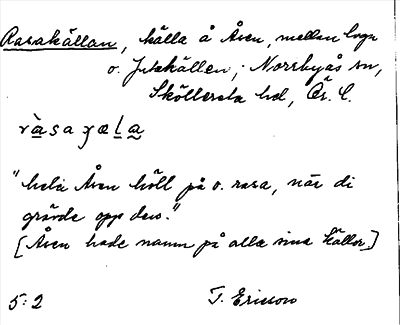 Rasakällan, källa å Åven, mellan
o. Julekällen; Norrbyås sn,
Sköllersta hd, Ör. l.
ràsaχæla
"hela Åven höll på o. rasa, när di
grävde opp den."
[Åven hade namn på alla sina källor]
5:2 T. Ericsson